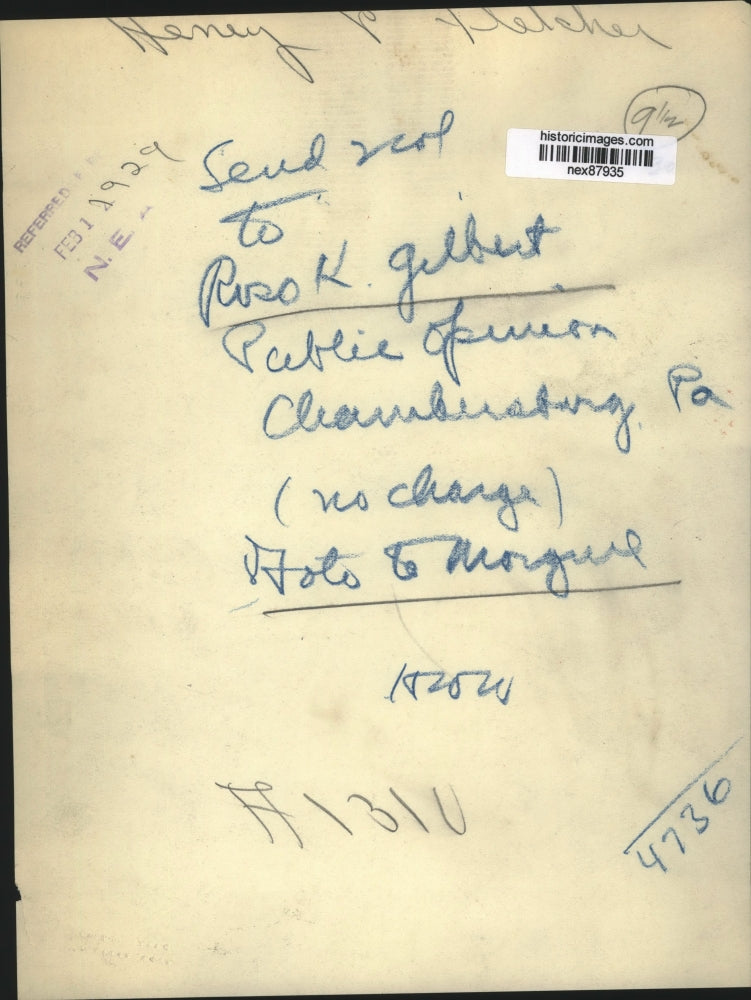 Henry P Fletcher
9 1/2
historicimages.com
nex87935
REFERRED
FEB 1 1929
N. E. A
Send
to
K. Gilbert
Public Opinion
Chambersburg, Pa
(no charge)
Foto to Morgue
# 1310
4736